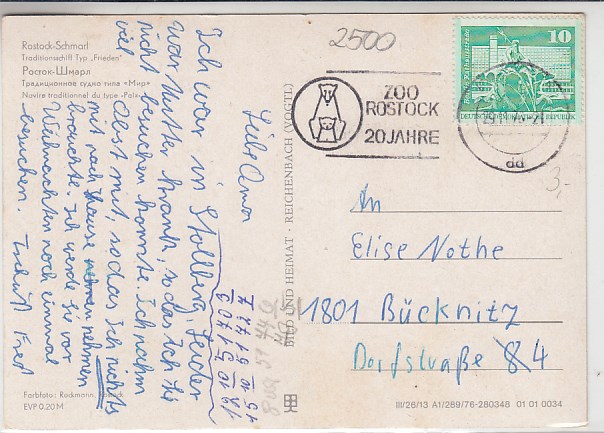 Rostock-Schmarl
Traditionsschiff Typ „Frieden"
Росток-Шмарл
Традиционное судно типа «Мир»
Navire traditionnel du type «Paix»
Liebe Oma
Ich war in Stollberg. Leider
war Mutter krank, so das ich sie
nicht besuchen konnte. Ich nahm
viel Obst mit, so das ich nichts
mir nach hause nehmen
brauchte. Ich werde sie vor
Weihnachten noch einmal
besuchen. Tschüß Fred
Farbfoto: Rockmann, Rostock
EVP 0.20 M
BILD UND HEIMAT · REICHENBACH (VOGTL)
2500
ZOO
ROSTOCK
20 JAHRE
10
3,-
An
Elise Nothe
1801 Bücknitz
Dorfstraße 4
III/26/13 A1/289/76-280348 01 01 0034